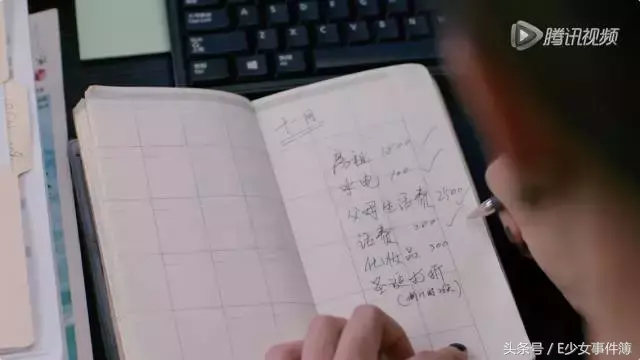 腾讯视频
十一月
房租 1800
水电 100
父母生活费 2500
话费 200
化妆品 300
圣诞打折
头条号 / E少女事件簿